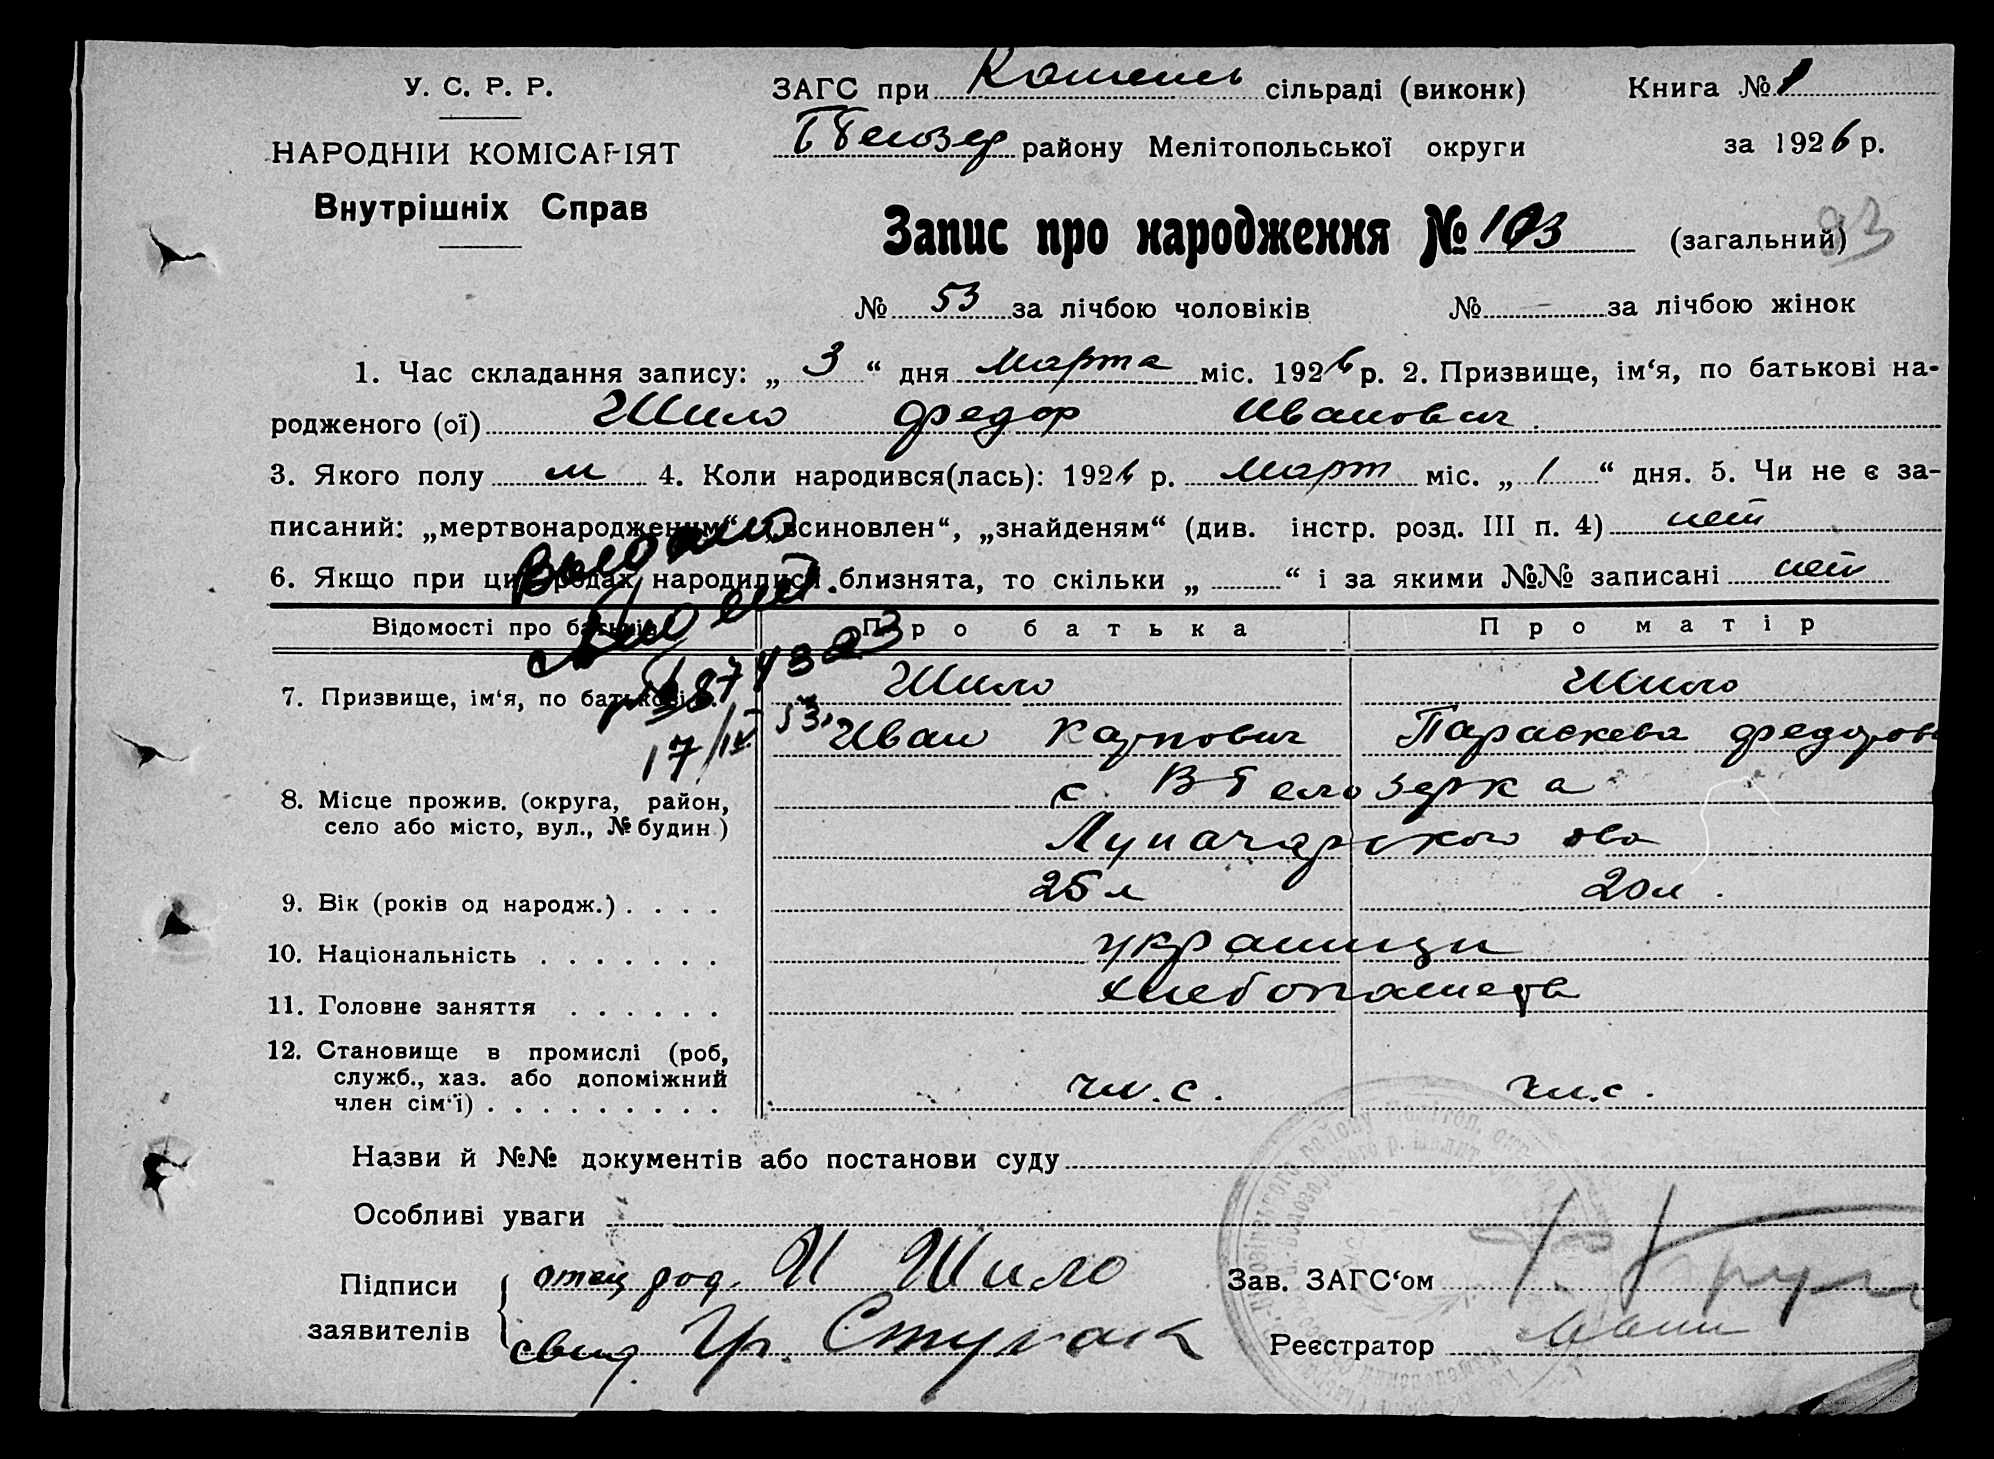 У. С. Р. Р.
НАРОДНІЙ КОМІСАРІЯТ
Внутрішніх Справ
ЗАГС при сільраді (виконк) Книга № 1
ББелозер району Мелітопольської округи за 1926 р.
Запис про народження № 103 (загальний) 93
№ 53 за лічбою чоловіків № — за лічбою жінок
1. Час складання запису: „ 3 “ дня Марта міс. 1926 р. 2. Призвище, ім‘я, по батькові на-
родженого (ої) Шило Федор Иванович
3. Якого полу м 4. Коли народився(лась): 1926 р. Март міс. „ 1 “ дня. 5. Чи не є за-
писаний: „мертвонародженим“ „всиновлен“, „знайденям“ (див. інстр. розд. III п. 4) нет
6. Якщо при цих родах народилися близнята, то скільки „ “ і за якими №№ записані нет
Выдано
17/IV 53
Відомості про батьків Про батька Про матір
7. Призвище, ім‘я, по батькові Шило Шило
Иван Карпович Параскева Федоров
8. Місце прожив. (округа, район, село або місто, вул., № будин) с. ВБелозерка
Луначарского
9. Вік (років од народж.) 25 л 20 л.
10. Національність украинци
11. Головне заняття хлебопашеств
12. Становище в промислі (роб, служб., хаз. або допоміжний член сім‘ї) чл. с. чл. с.
Назви й №№ документів або постанови суду
Особливі уваги
Підписи заявителів отец род. И Шило
свид. Гр. Ступак
Зав. ЗАГС‘ом
Реєстратор